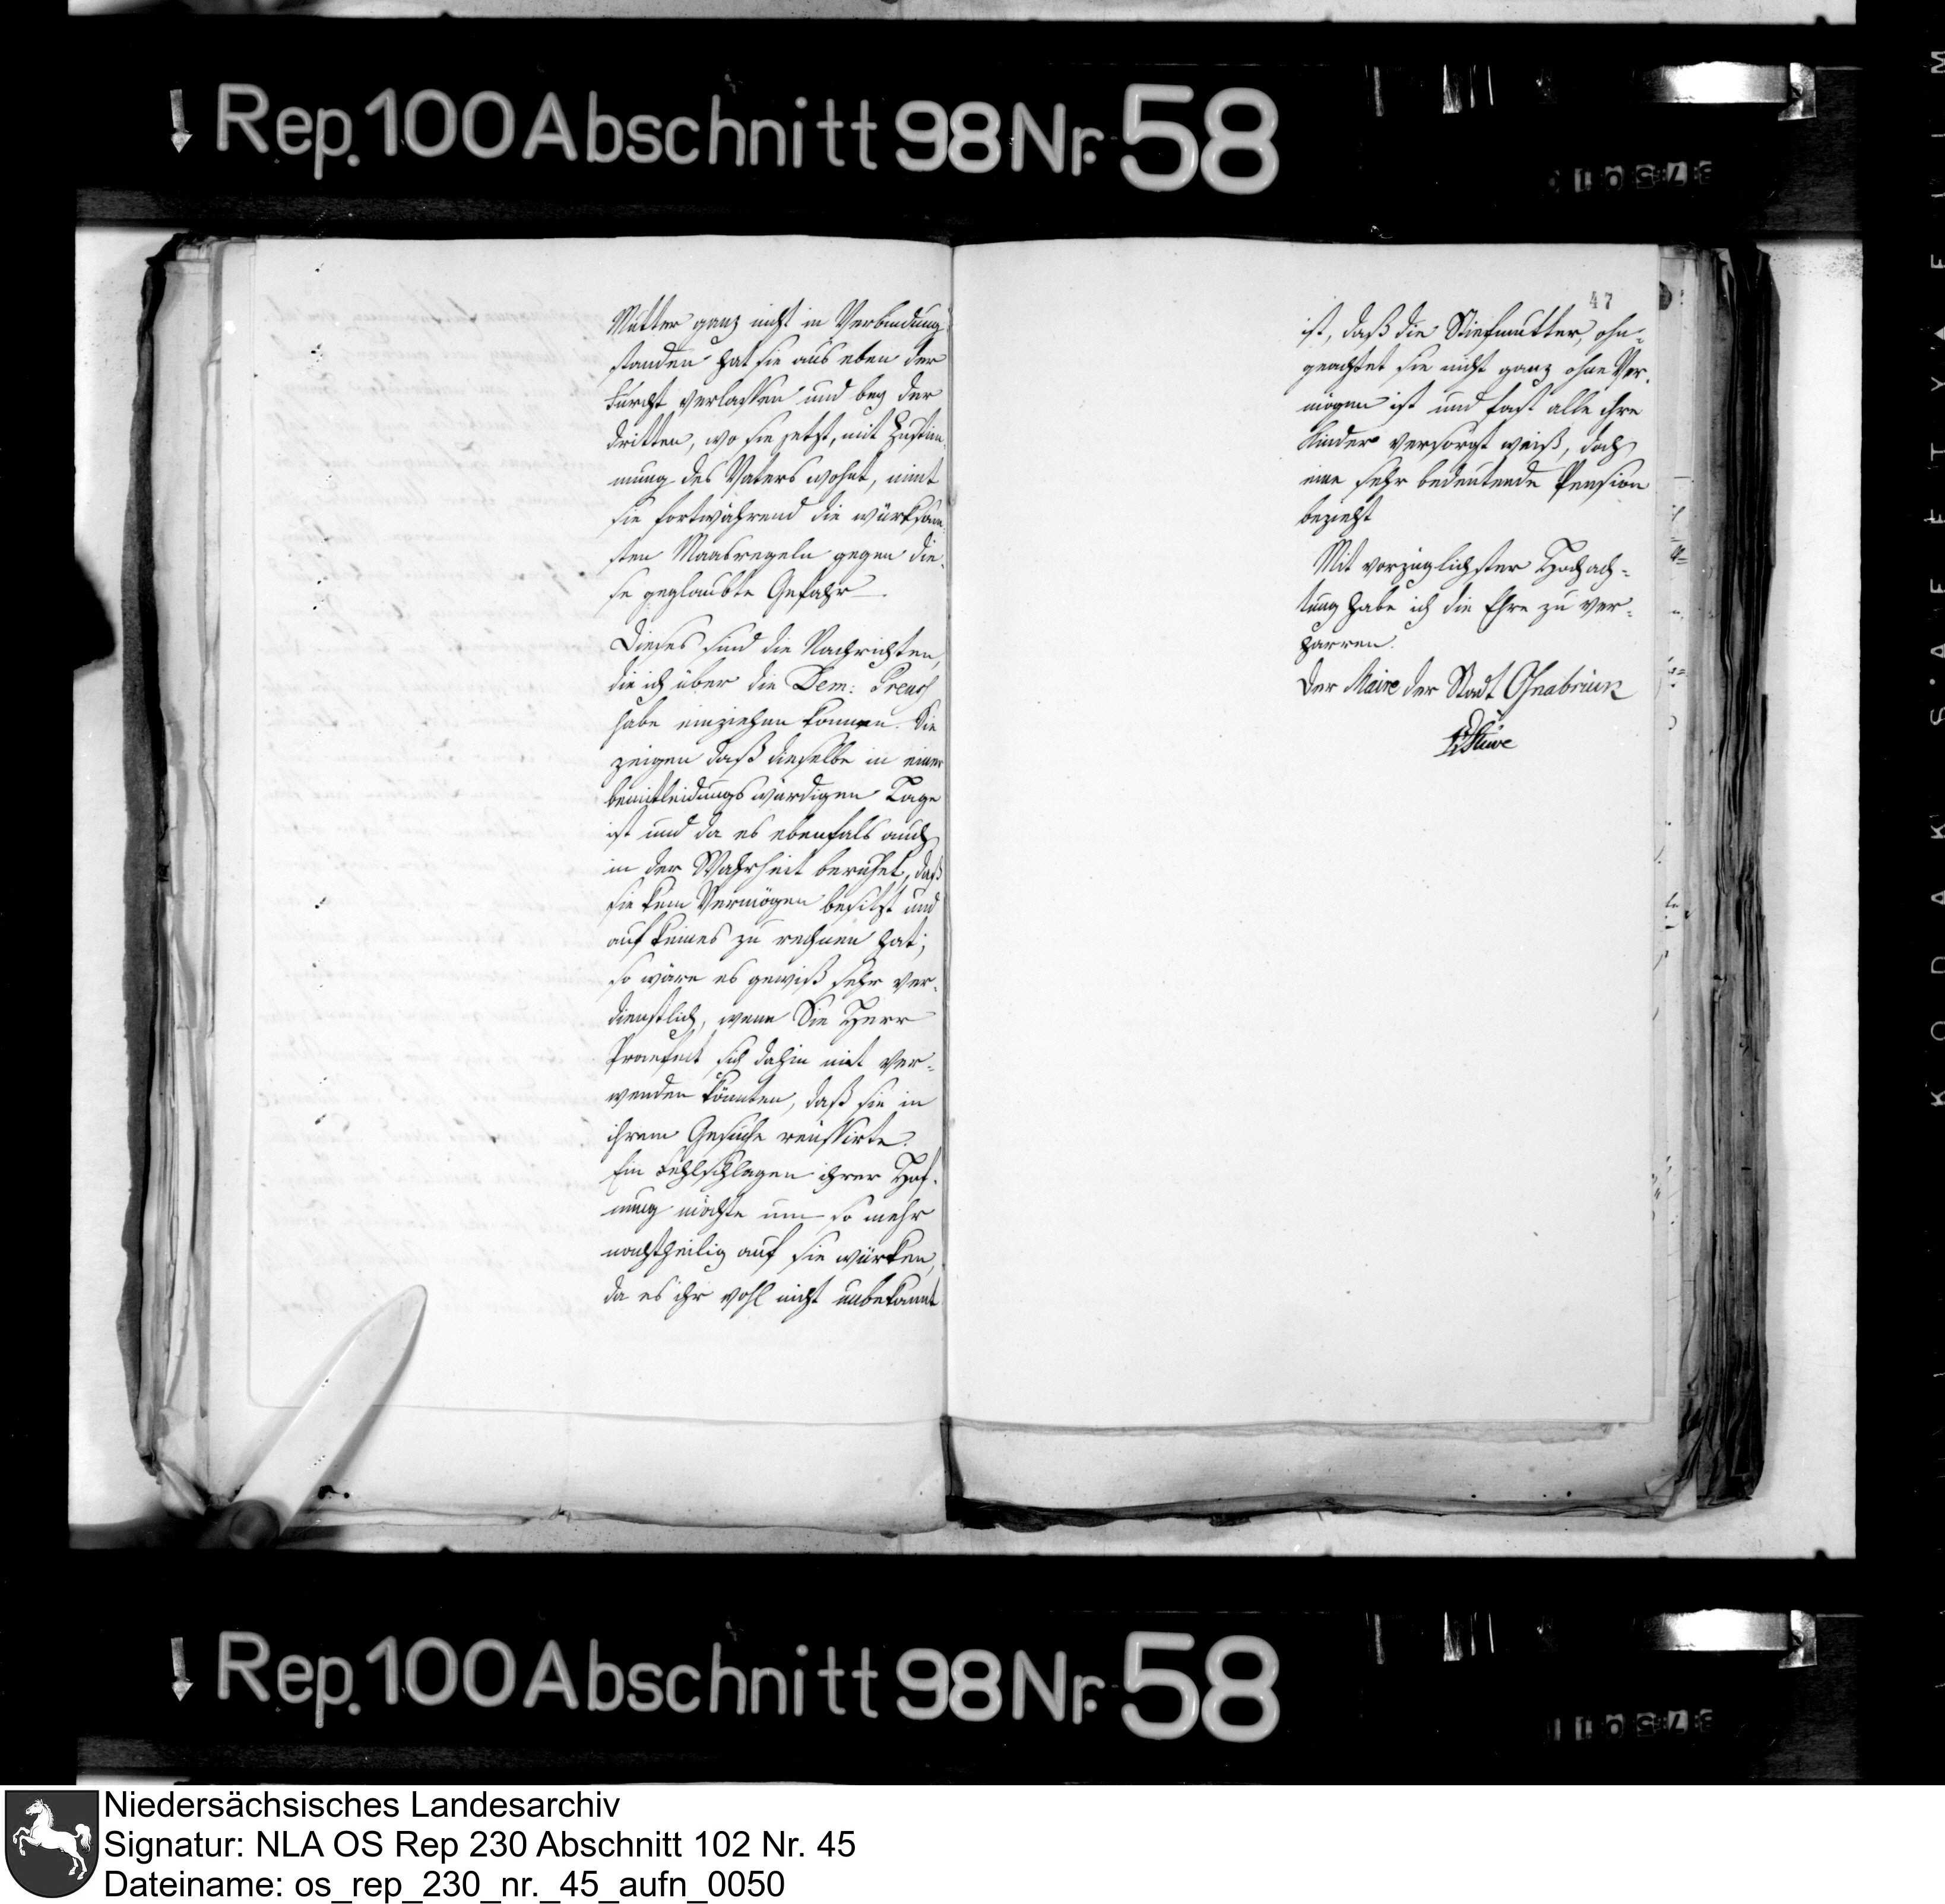 Rep. 100 Abschnitt 98 Nr. 58
Mutter ganz nicht in Verbindung
standen hat sie aus eben der
Furcht verlassen und bey der
dritten, wo sie jetzt, mit Zustim-
mung des Vaters wohnt, nimt
sie fortwährend die würksam-
sten Maasregeln gegen die-
se geglaubte Gefahr.
Dieses sind die Nachrichten,
die ich über die Dem: Preuss
habe einziehen können. Sie
zeigen daß dieselbe in einer
bemitleidungswürdigen Lage
ist und da es ebenfals auch
in der Wahrheit beruhet, daß
sie kein Vermögen besitzt und
auf keines zu rechnen hat;
so wäre es gewiß sehr ver-
dienstlich, wenn Sie Herr
Praefect sich dahin mit ver-
wenden könnten, daß sie in
ihrem Gesuche reussirte.
Ein Fehlschlagen ihrer Hof-
nung möchte um so mehr
nachtheilig auf sie würken,
da es ihr wohl nicht unbekannt
47
ist, daß die Stiefmutter, ohn-
geachtet sie nicht ganz ohne Ver-
mögen ist und fast alle ihre
Kinder versorgt weiß, doch
eine sehr bedeutende Pension
bezieht
Mit vorzüglichster Hochach-
tung habe ich die Ehre zu ver-
harren.
Der Maire der Stadt Osnabrück
Stüve
Rep. 100 Abschnitt 98 Nr. 58
Niedersächsisches Landesarchiv
Signatur: NLA OS Rep 230 Abschnitt 102 Nr. 45
Dateiname: os_rep_230_nr._45_aufn_0050